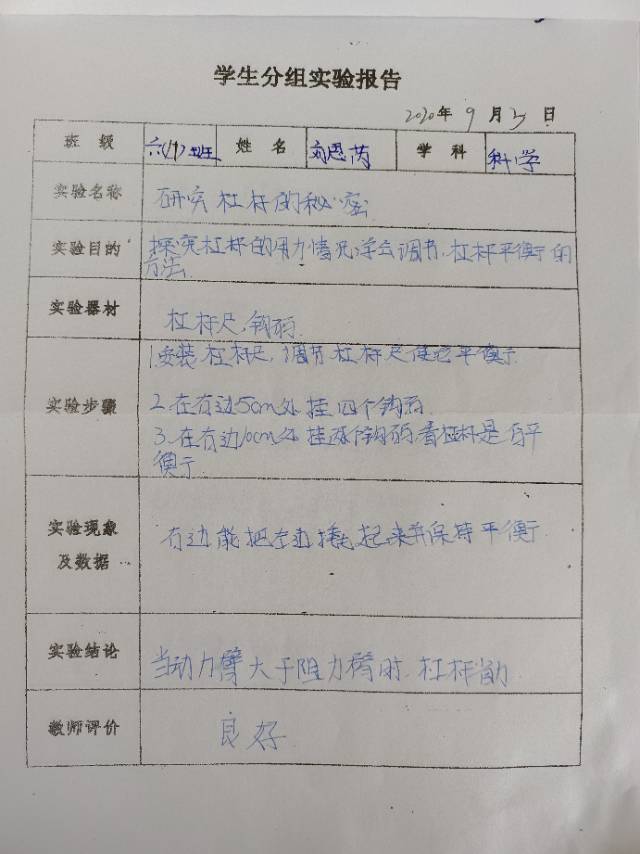 学生分组实验报告
2020年 9 月 3 日
班 级 六(1)班 姓 名 刘恩芮 学 科 科学
实验名称 研究杠杆的秘密
实验目的 探究杠杆的用力情况,学会调节,杠杆平衡的
方法
实验器材 杠杆尺,钩码
实验步骤 1.安装杠杆尺,调节杠杆尺使它平衡
2.在右边5cm处挂四个钩码
3.在右边10cm处挂两个钩码,看杠杆是否平
衡
实验现象
及数据 右边能把左边撬起来并保持平衡
实验结论 当动力臂大于阻力臂时,杠杆省力
教师评价 良好